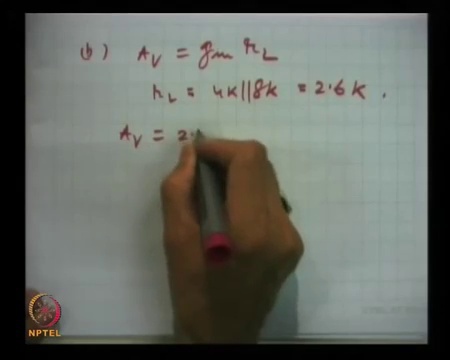 (b) Av = gm rL
rL = 4K||8K = 2.6K.
Av = 2.
NPTEL